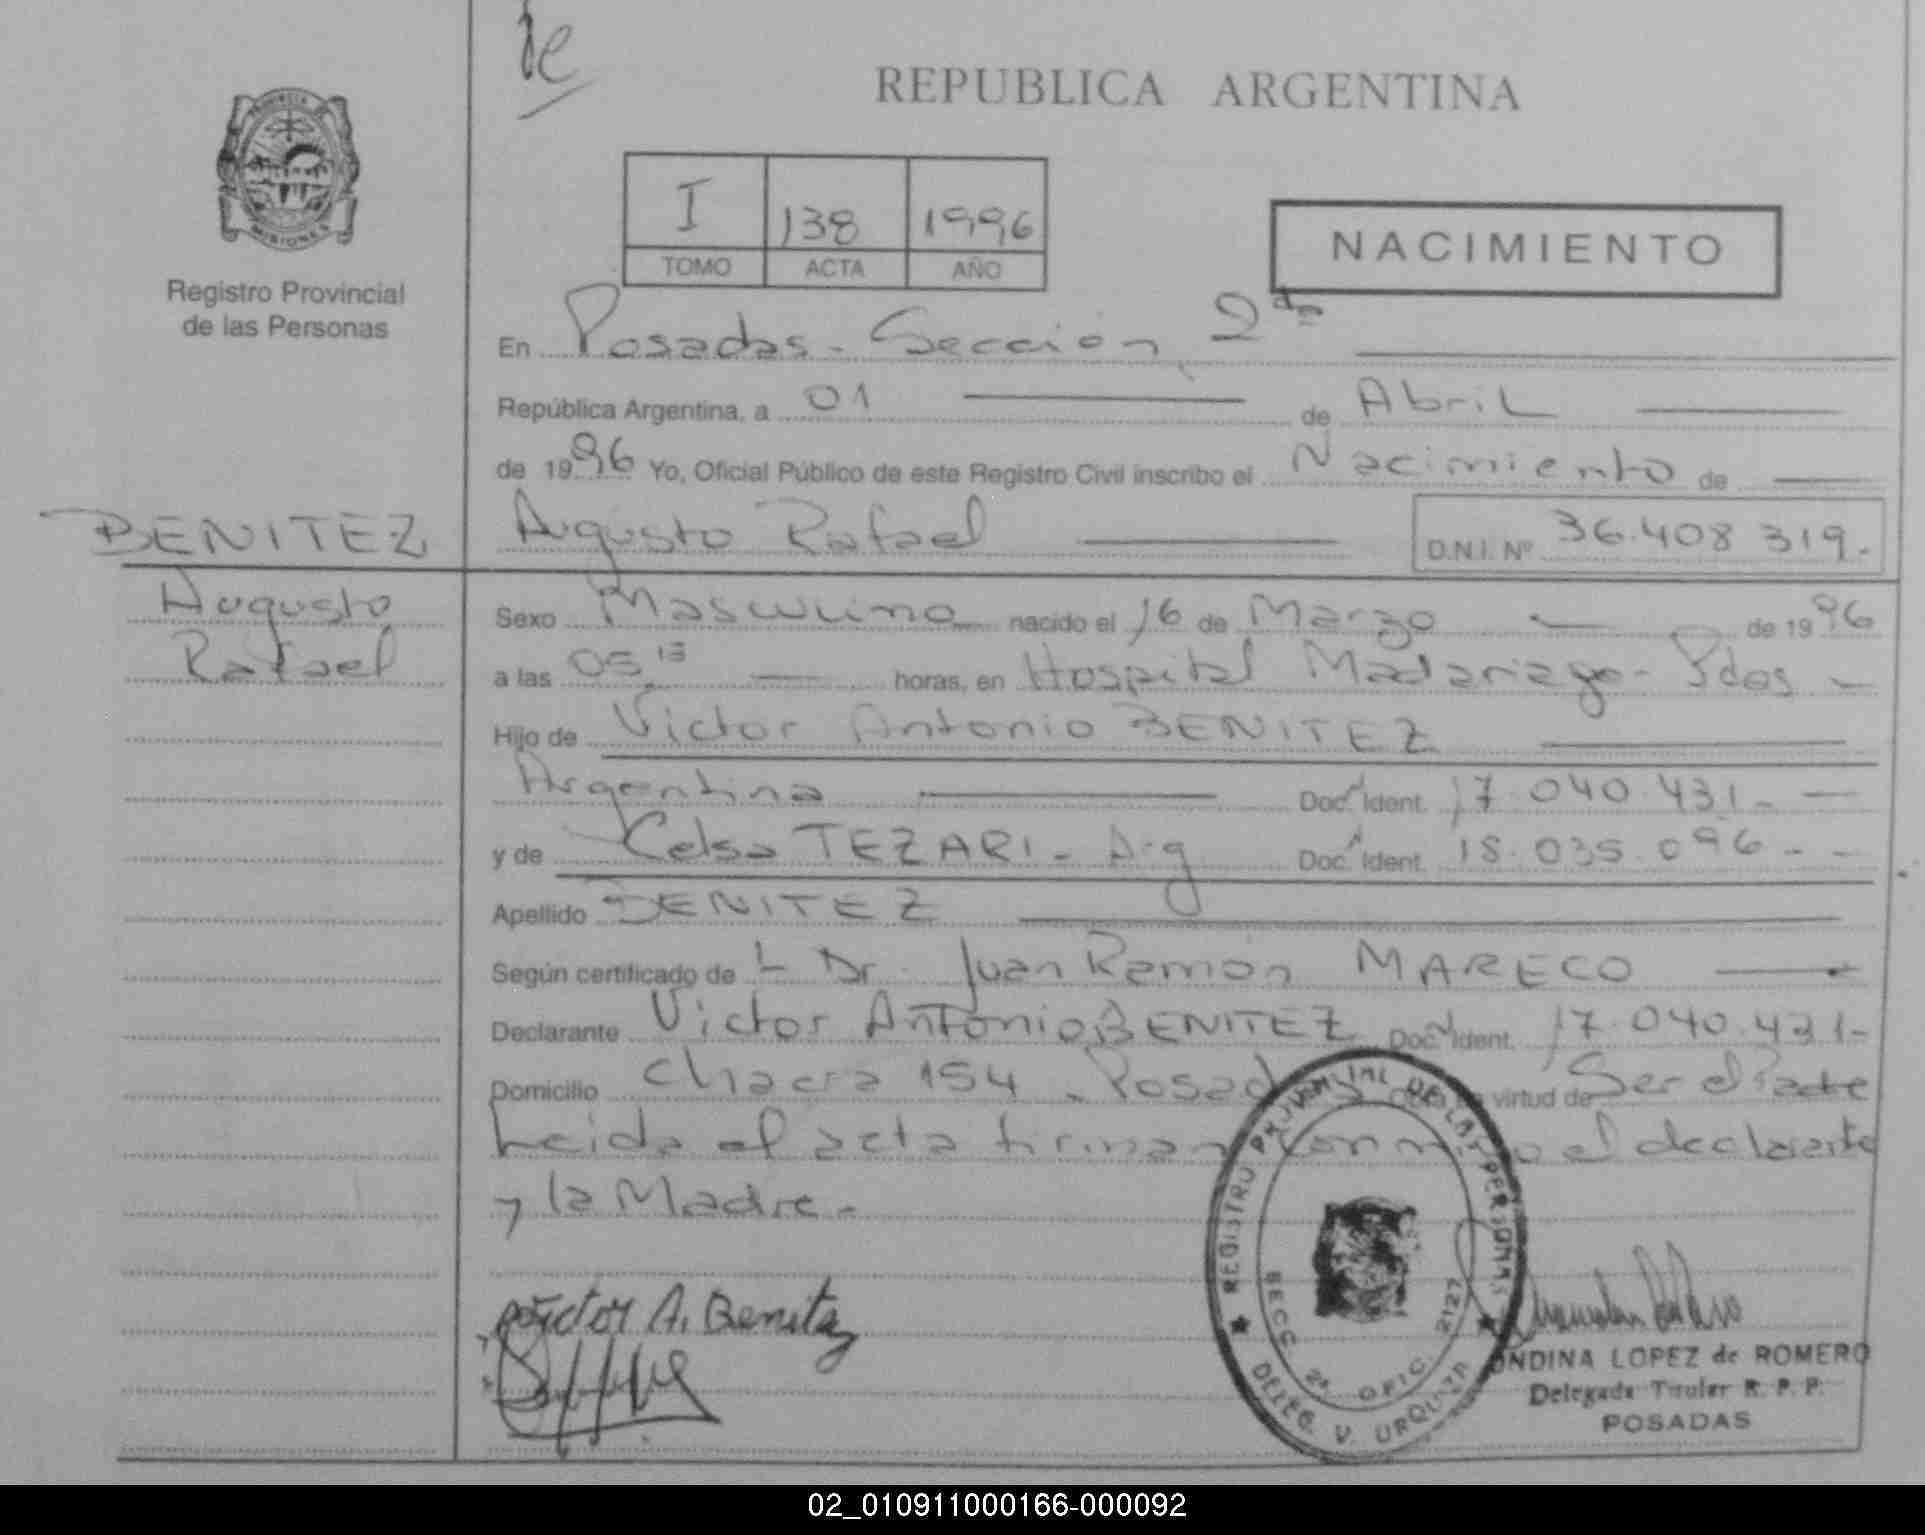 te
REPUBLICA ARGENTINA
PROVINCIA
MISIONES
Registro Provincial
de las Personas
I 138 1996
TOMO ACTA AÑO
NACIMIENTO
En Posadas - Sección 2da
República Argentina, a 01 de Abril
de 1996 Yo, Oficial Público de este Registro Civil inscribo el Nacimiento de
BENITEZ Augusto Rafael D.N.I. Nº 36.408 319.-
Augusto
Rafael
Sexo Masculino nacido el 16 de Marzo de 1996
a las 05,15 horas, en Hospital Madariaga - Pdas
Hijo de Victor Antonio BENITEZ
Argentina Doc. Ident. 17.040.431-
y de Celsa TEZARI - Arg Doc. Ident. 18.035.096 - -
Apellido BENITEZ
Según certificado de L Dr. Juan Ramón MARECO
Declarante Victor Antonio BENITEZ Doc. Ident. 17.040.431-
Domicilio Chacra 154 - Posadas Obra en virtud de Ser el Padre
Leida el acta firman conmigo el declarante
y la Madre.-
REGISTRO PROVINCIAL DE LAS PERSONAS
SECC. 2ª OFIC. 2127
DELEG. V. URQUIZA
Victor A. Benitez
ONDINA LOPEZ de ROMERO
Delegada Titular R. P. P.
POSADAS
02_010911000166-000092